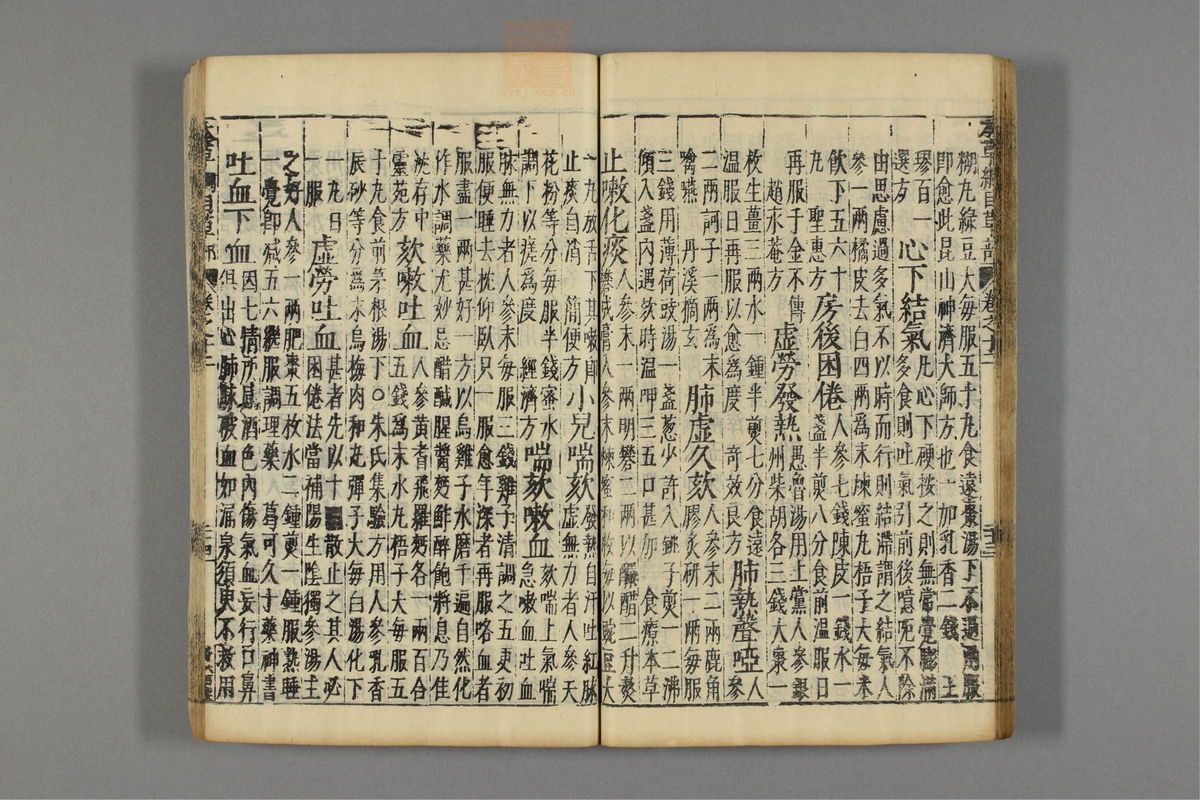 糊丸綠豆大每服五十丸食遠棗湯下不過兩服
即愈此昆山神濟大師方也一加乳香二錢 王
璆百一選方 心下結氣 凡心下硬按之則無常覺膨滿多食則吐氣引前後噫呃不除
由思慮過多氣不以時而行則結滯謂之結氣人
參一兩橘皮去白四兩爲末煉蜜丸梧子大每米
飲下五六十丸 聖惠方 房後困倦 人參七錢陳皮一錢水一盞半煎八分食前溫服日
再服千金不傳 趙永菴方 虛勞發熱 愚魯湯用上黨人參銀州柴胡各三錢大棗一
枚生薑三片水一鍾半煎七分食遠
溫服日再服以愈爲度 奇效良方 肺熱聲啞 人參
二兩訶子一兩爲末噙嚥 丹溪摘玄 肺虛久欬 人參末二兩鹿角膠炙研一兩每服
三錢用薄荷豉湯一盞葱少許入銚子煎一二沸
傾入盞內遇欬時溫呷三五口甚佳 食療本草
止嗽化痰 人參末一兩明礬二兩以釅醋二升熬礬成膏入參末煉蜜和收每以豌豆大
一丸放舌下其嗽即止痰自消 簡便方 小兒喘欬 發熱自汗吐紅脉虛無力者人參天
花粉等分每服半錢蜜水調下以瘥爲度 經濟方 喘欬嗽血 欬喘上氣喘急嗽血吐血
脉無力者人參末每服三錢雞子清調之五更初
服便睡去枕仰臥只一服愈年深者再服咯血者
服盡一兩甚好一方以烏雞子水磨千遍自然化
作水調藥尤妙忌醋鹹腥醬麪鮓醉飽將息乃佳
沈存中靈苑方 欬嗽吐血 人參黃耆飛羅麪各一兩百合五錢爲末水丸梧子大每服五
十丸食前茅根湯下○朱氏集驗方用人參乳香
辰砂等分爲末烏梅肉和丸彈子大每白湯化下
一丸日一服 虛勞吐血 甚者先以十灰散止之其人必困倦法當補陽生陰獨參湯主
之好人參一兩肥棗五枚水二鍾煎一鍾服熟睡
一覺即減五六繼服調理藥 葛可久十藥神書
吐血下血 因七情所感酒色內傷氣血妄行口鼻俱出心肺脉破血如涌泉須臾不救用